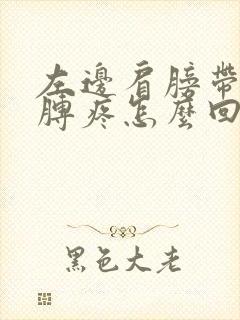 左邊肩膀帶
膊疼怎麼回
黑色大老